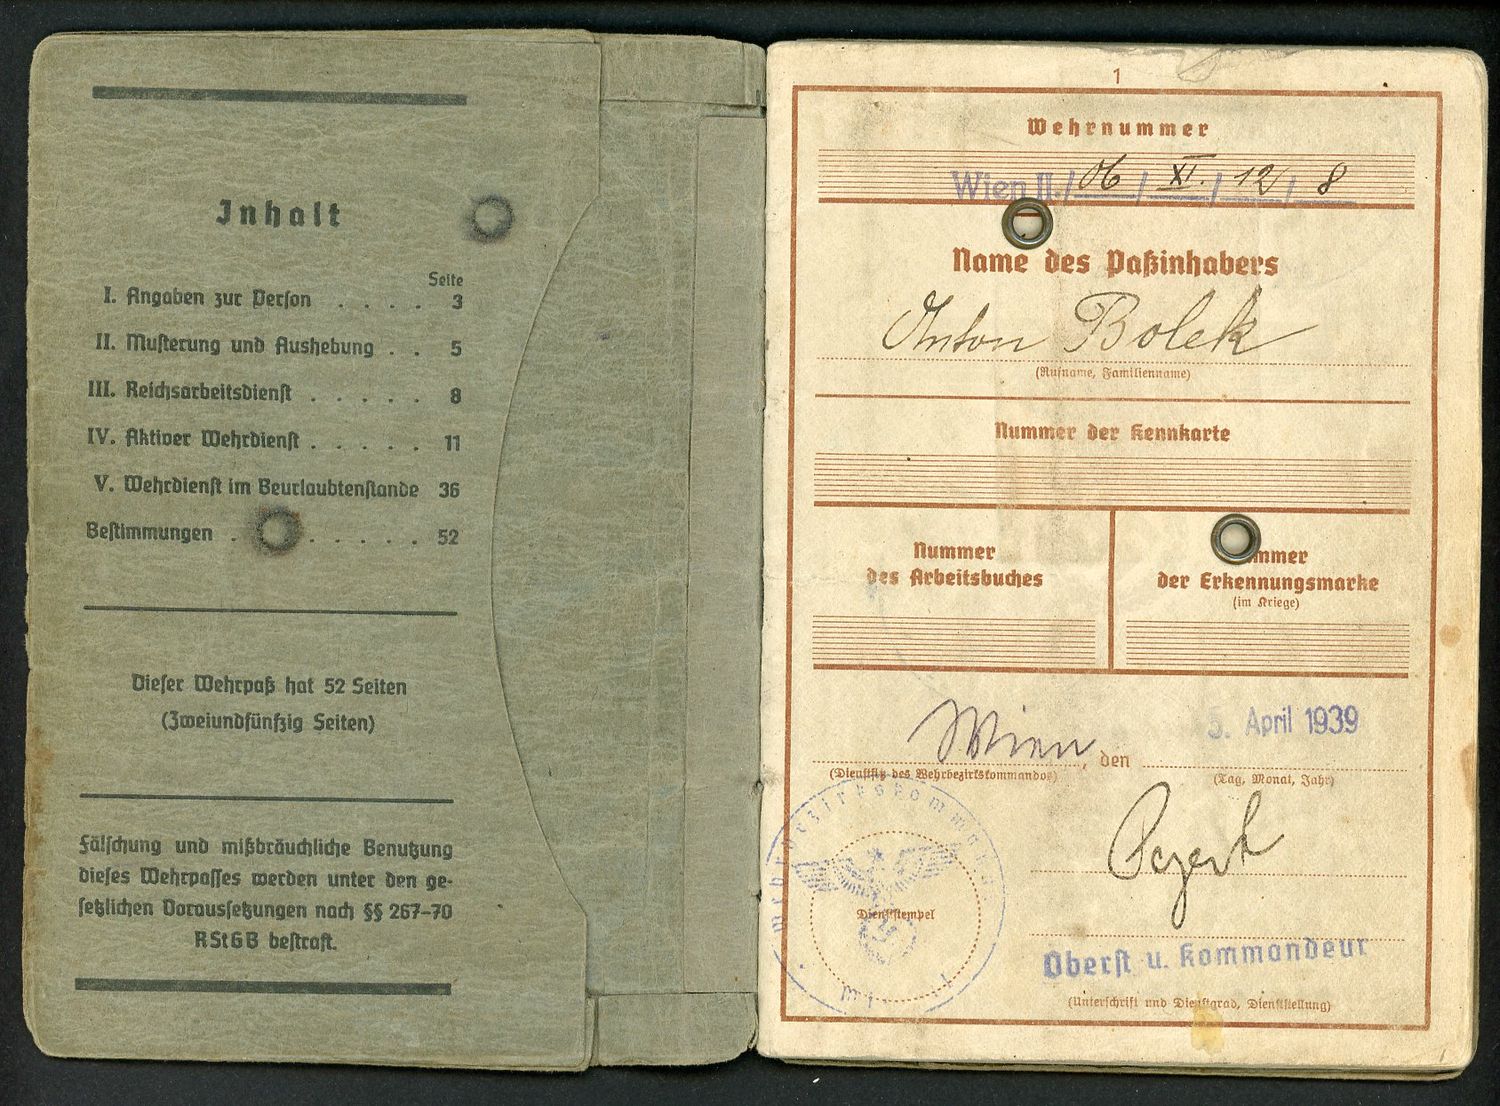 Inhalt
Seite
I. Angaben zur Person . . . . 3
II. Musterung und Aushebung . . 5
III. Reichsarbeitsdienst . . . . . 8
IV. Aktiver Wehrdienst . . . . . 11
V. Wehrdienst im Beurlaubtenstande 36
Bestimmungen . . . . . . 52
Dieser Wehrpaß hat 52 Seiten
(Zweiundfünfzig Seiten)
Fälschung und mißbräuchliche Benutzung
dieses Wehrpasses werden unter den ge-
setzlichen Voraussetzungen nach §§ 267-70
RStGB bestraft.
1
Wehrnummer
Wien II./06/XI./12/8
Name des Paßinhabers
Anton Bolek
(Rufname, Familienname)
Nummer der Kennkarte
Nummer
des Arbeitsbuches
Nummer
der Erkennungsmarke
(im Kriege)
Wien, den 5. April 1939
(Dienstsitz des Wehrbezirkskommandos)
(Tag, Monat, Jahr)
Wehrbezirkskommando
Dienststempel
Oberst u. Kommandeur
(Unterschrift und Dienstgrad, Dienststellung)